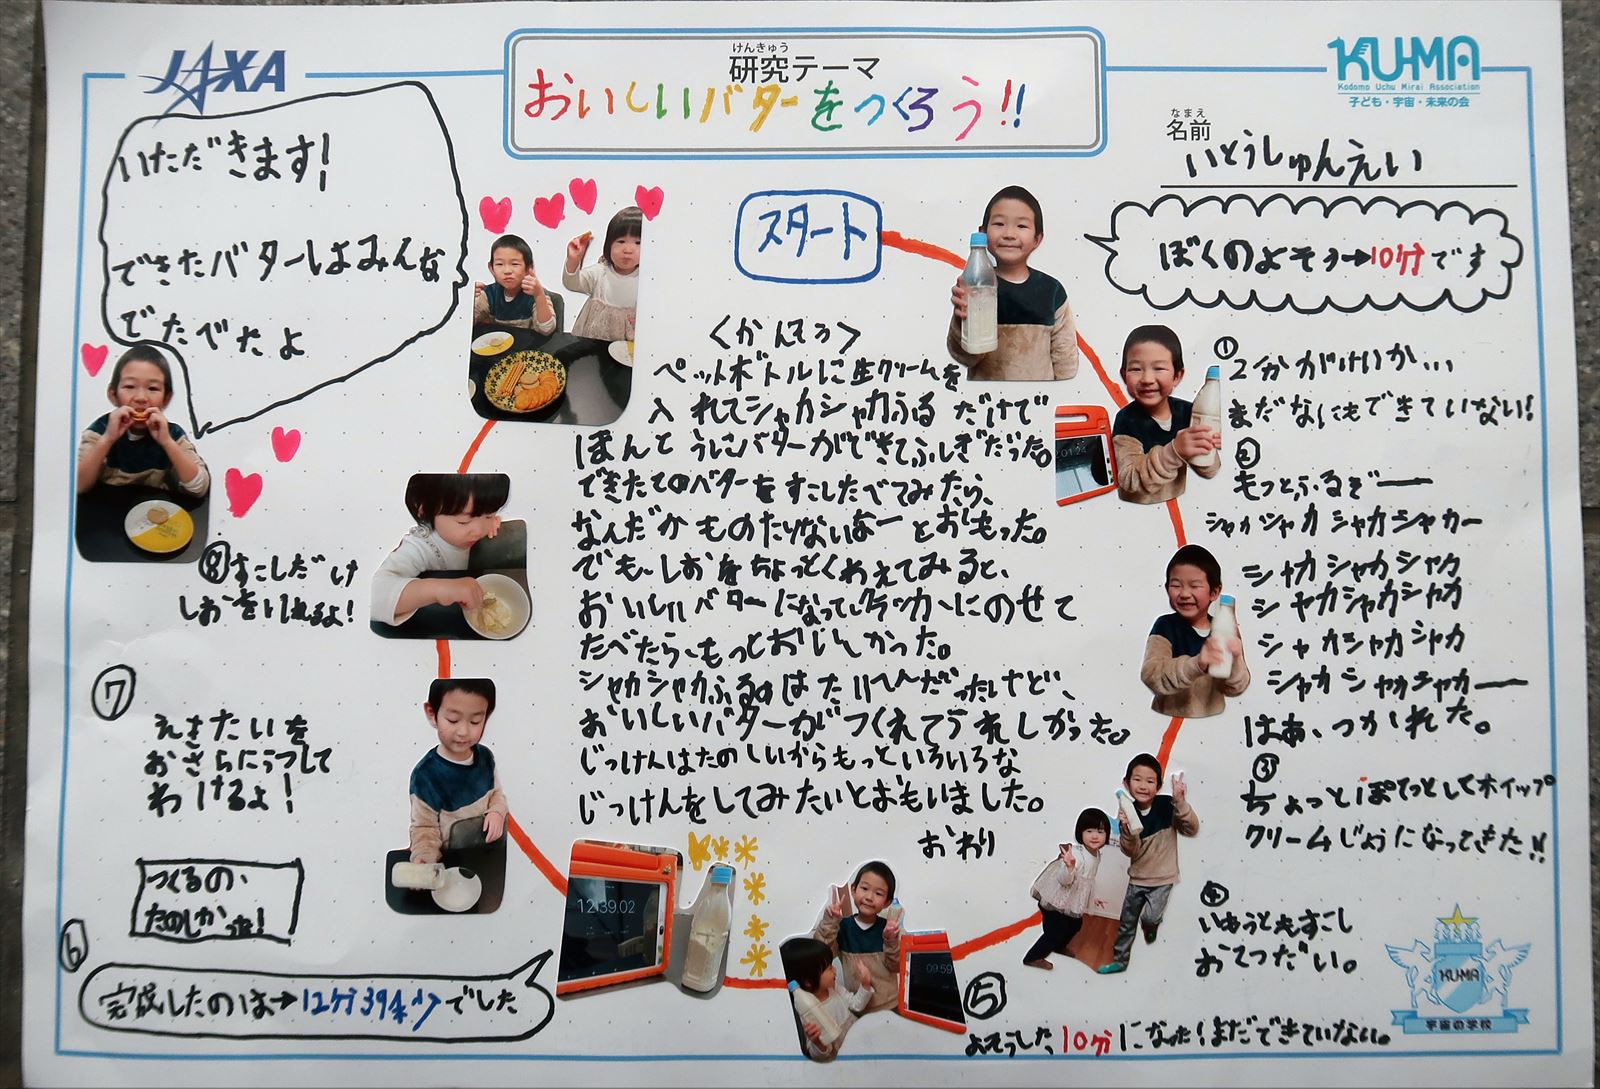 JAXA
けんきゅう
研究テーマ
おいしいバターをつくろう!!
KU-MA
Kodomo Uchu Mirai Association
子ども・宇宙・未来の会
なまえ
名前
いとうしゅんえい
スタート
ぼくのよそう→10分です
①
2ふんがけいか…
まだなにもできていない!
②
もっとふるぞー
シャカシャカシャカシャカー
シャカシャカシャカ
シャカシャカシャカ
シャカシャカシャカ
シャカシャカシャカー
はあ、つかれた。
③
ちょっとぽてっとしてホイップ
クリームじょうになってきた!!
④
いもうともすこし
おてつだい。
⑤
よそうした10分になった!まだできていない。
09:59
⑥
完成したのは→12分39秒でした
12:39.02
つくるの、
たのしかった!
⑦
えきたいを
おさらにうつして
わけるよ!
⑧すこしだけ
しおをいれるよ!
いただきます!
できたバターはみんな
でたべたよ
〈かんそう〉
ペットボトルに生クリームを
入れてシャカシャカふるだけで
ほんとうにバターができてふしぎだった。
できたてのバターをすこしたべてみたら、
なんだかものたりないなーとおもった。
でも、しおをちょっとくわえてみると、
おいしいバターになってクラッカーにのせて
たべたら、もっとおいしかった。
シャカシャカふるのはたいへんだったけど、
おいしいバターがつくれてうれしかった。
じっけんはたのしいからもっといろいろな
じっけんをしてみたいとおもいました。
おわり
KU-MA
宇宙の学校